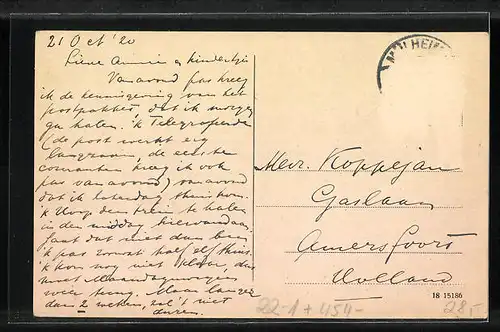 21 Oct '20
Lieve Annie en kindertjes
Van avond pas kreeg
ik de kennisgeving van het
postpakket, dat ik morgen
ga halen. 'k Telegrafeerde
(de post werkt erg
langzaam, de eerste
couranten kreeg ik ook
pas van avond) van avond
dat ik Zaterdag thuis kom.
'k Hoop den trein te halen
in den middag hiervandaan.
Gaat dat niet dan ben
'k pas zoowat half elf thuis.
'k kom nog niet klaar, dus
moet Maandagmorgen
weer terug. Maar langer
dan 2 weken, zal 't niet
duren.
MÜLHEIM
Mevr. Koppejan
Gaslaan
Amersfoort
Holland
18 15186
22-1 + 454-
28,-